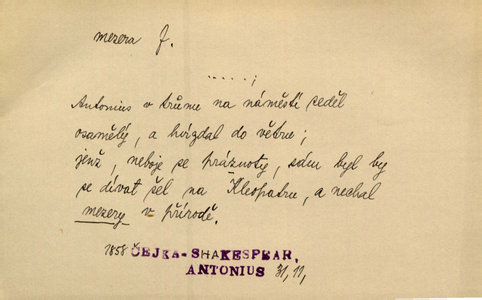 mezera f.
.....;
Antonius v trůme na náměstí seděl
osamělý, a hvízdal do větru;
jenž, neboje se práznoty, sám byl by
se dívat šel na Kleopatru, a nechal
mezery v přírodě.
1858 ČEJKA-SHAKESPEAR,
ANTONIUS 31, 11,